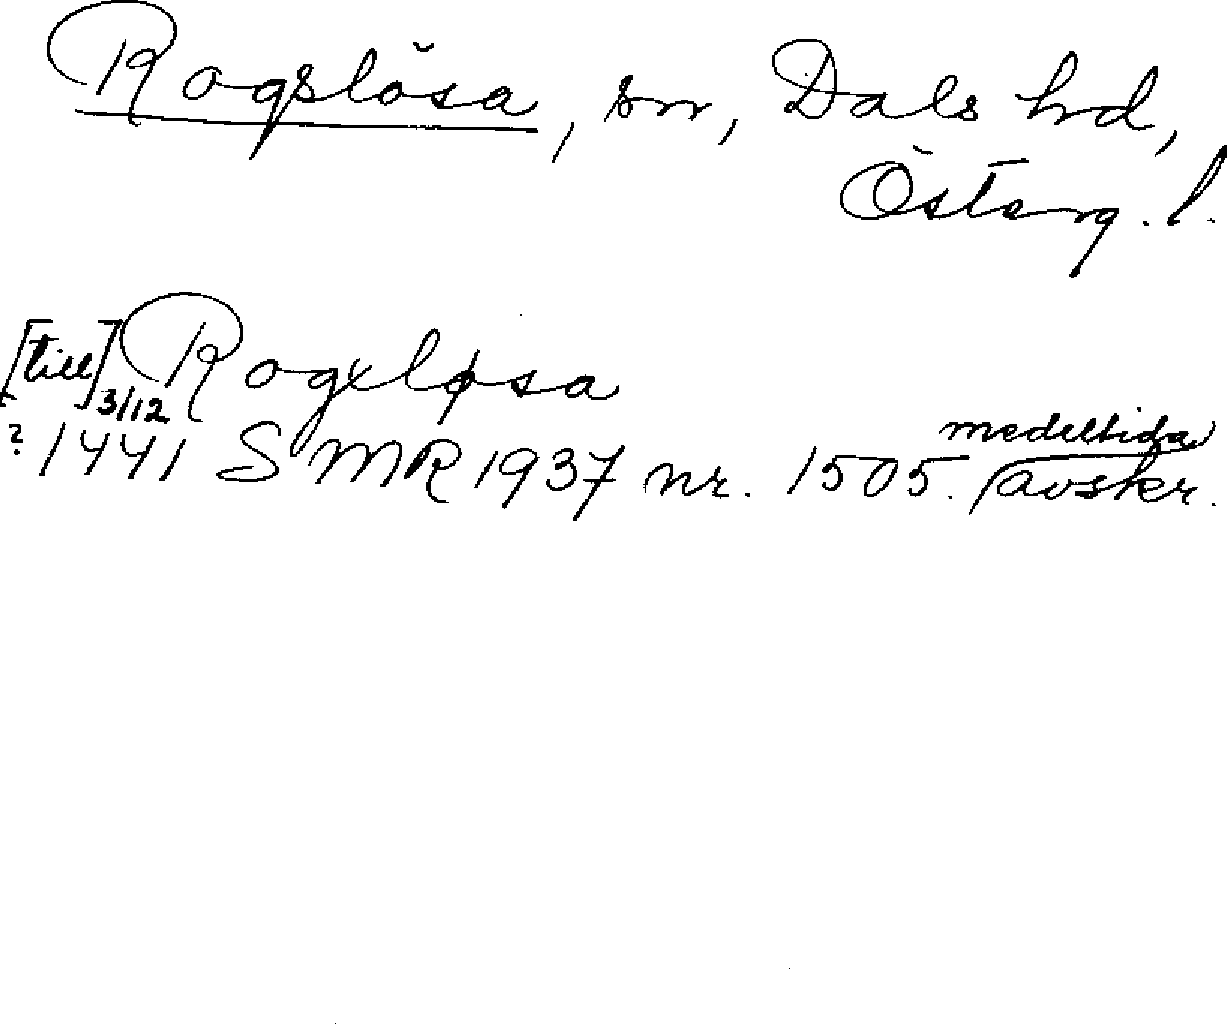 Rogslösa, sn, Dals hd,
Österg. l.
[till] Rogxløsa
3/12
? 1441 SMR 1937 nr. 1505. medeltida
avskr.